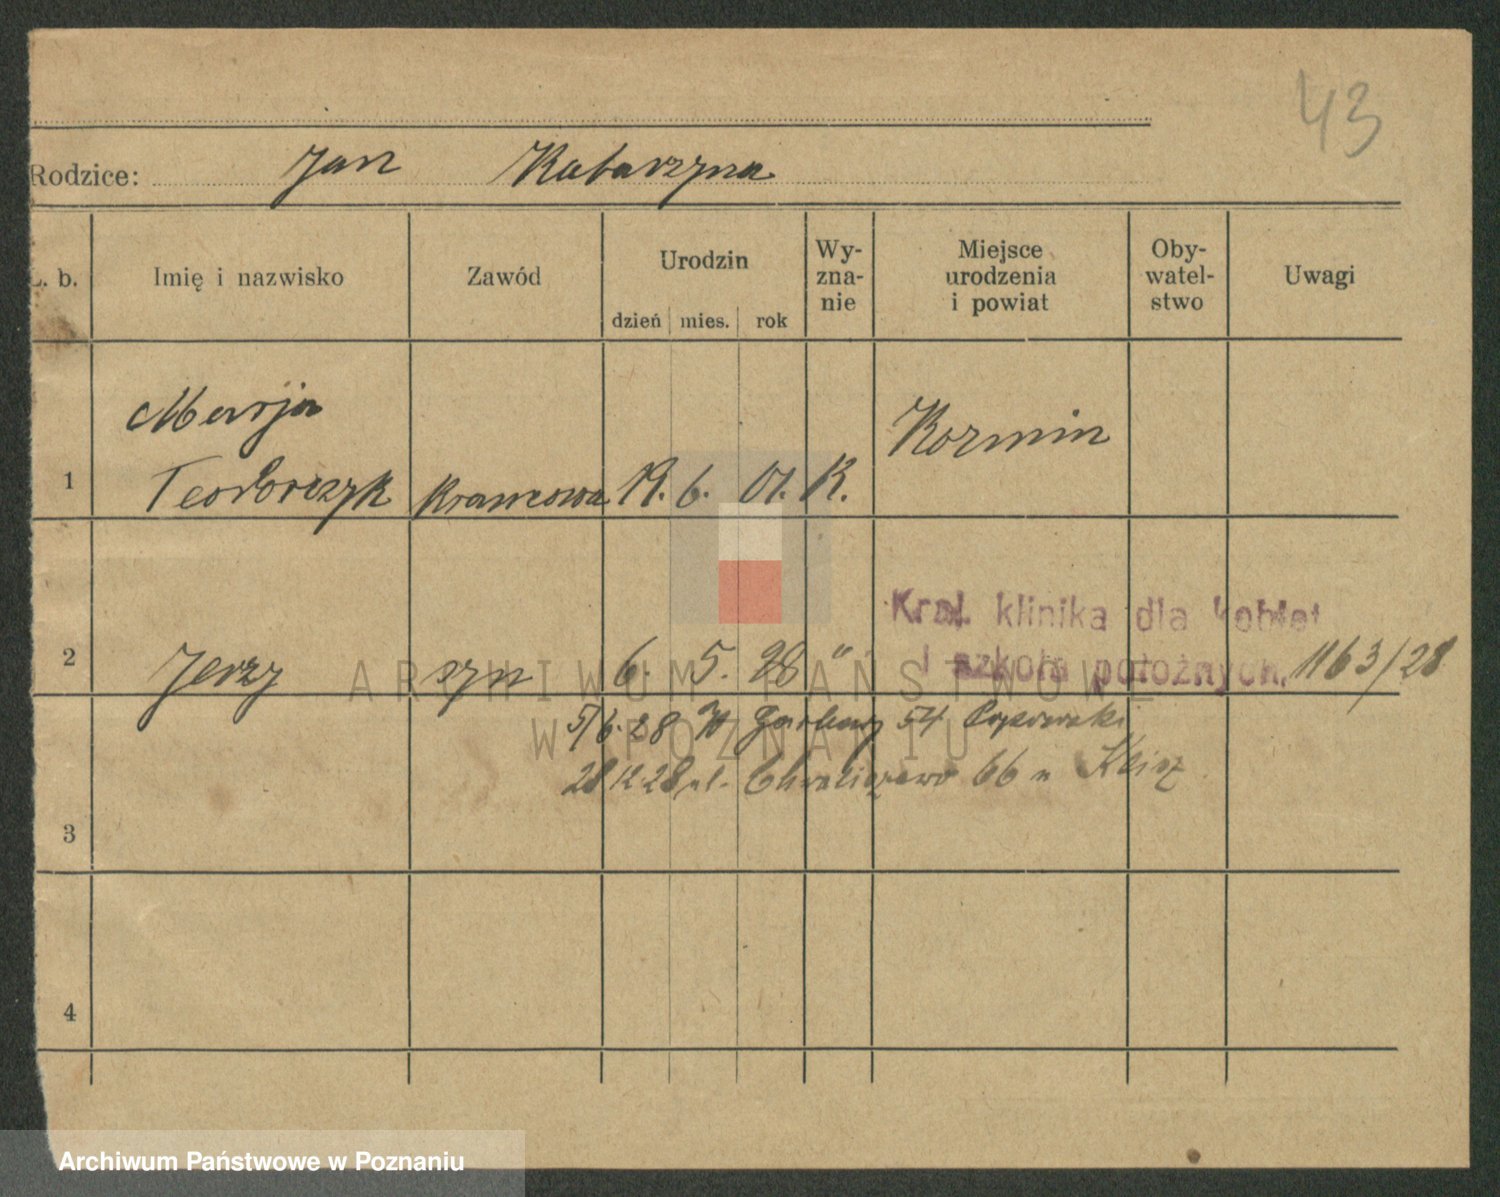 43
Rodzice: Jan Katarzyna
L. b.
Imię i nazwisko
Zawód
Urodzin
dzień mies. rok
Wy-
zna-
nie
Miejsce
urodzenia
i powiat
Oby-
watel-
stwo
Uwagi
Marja
1 Teodorczyk krawcowa 19. 6. 01. K. Kozmin
Kraj. klinika dla kobiet
i szkoła położnych.
2 Jerzy syn 6. 5. 28 " 1163/28
5/6. 28 Garbary 54
28 12 28 ul. Chwaliszewo 66 u
3
4
ARCHIWUM PAŃSTWOWE
W POZNANIU
Archiwum Państwowe w Poznaniu